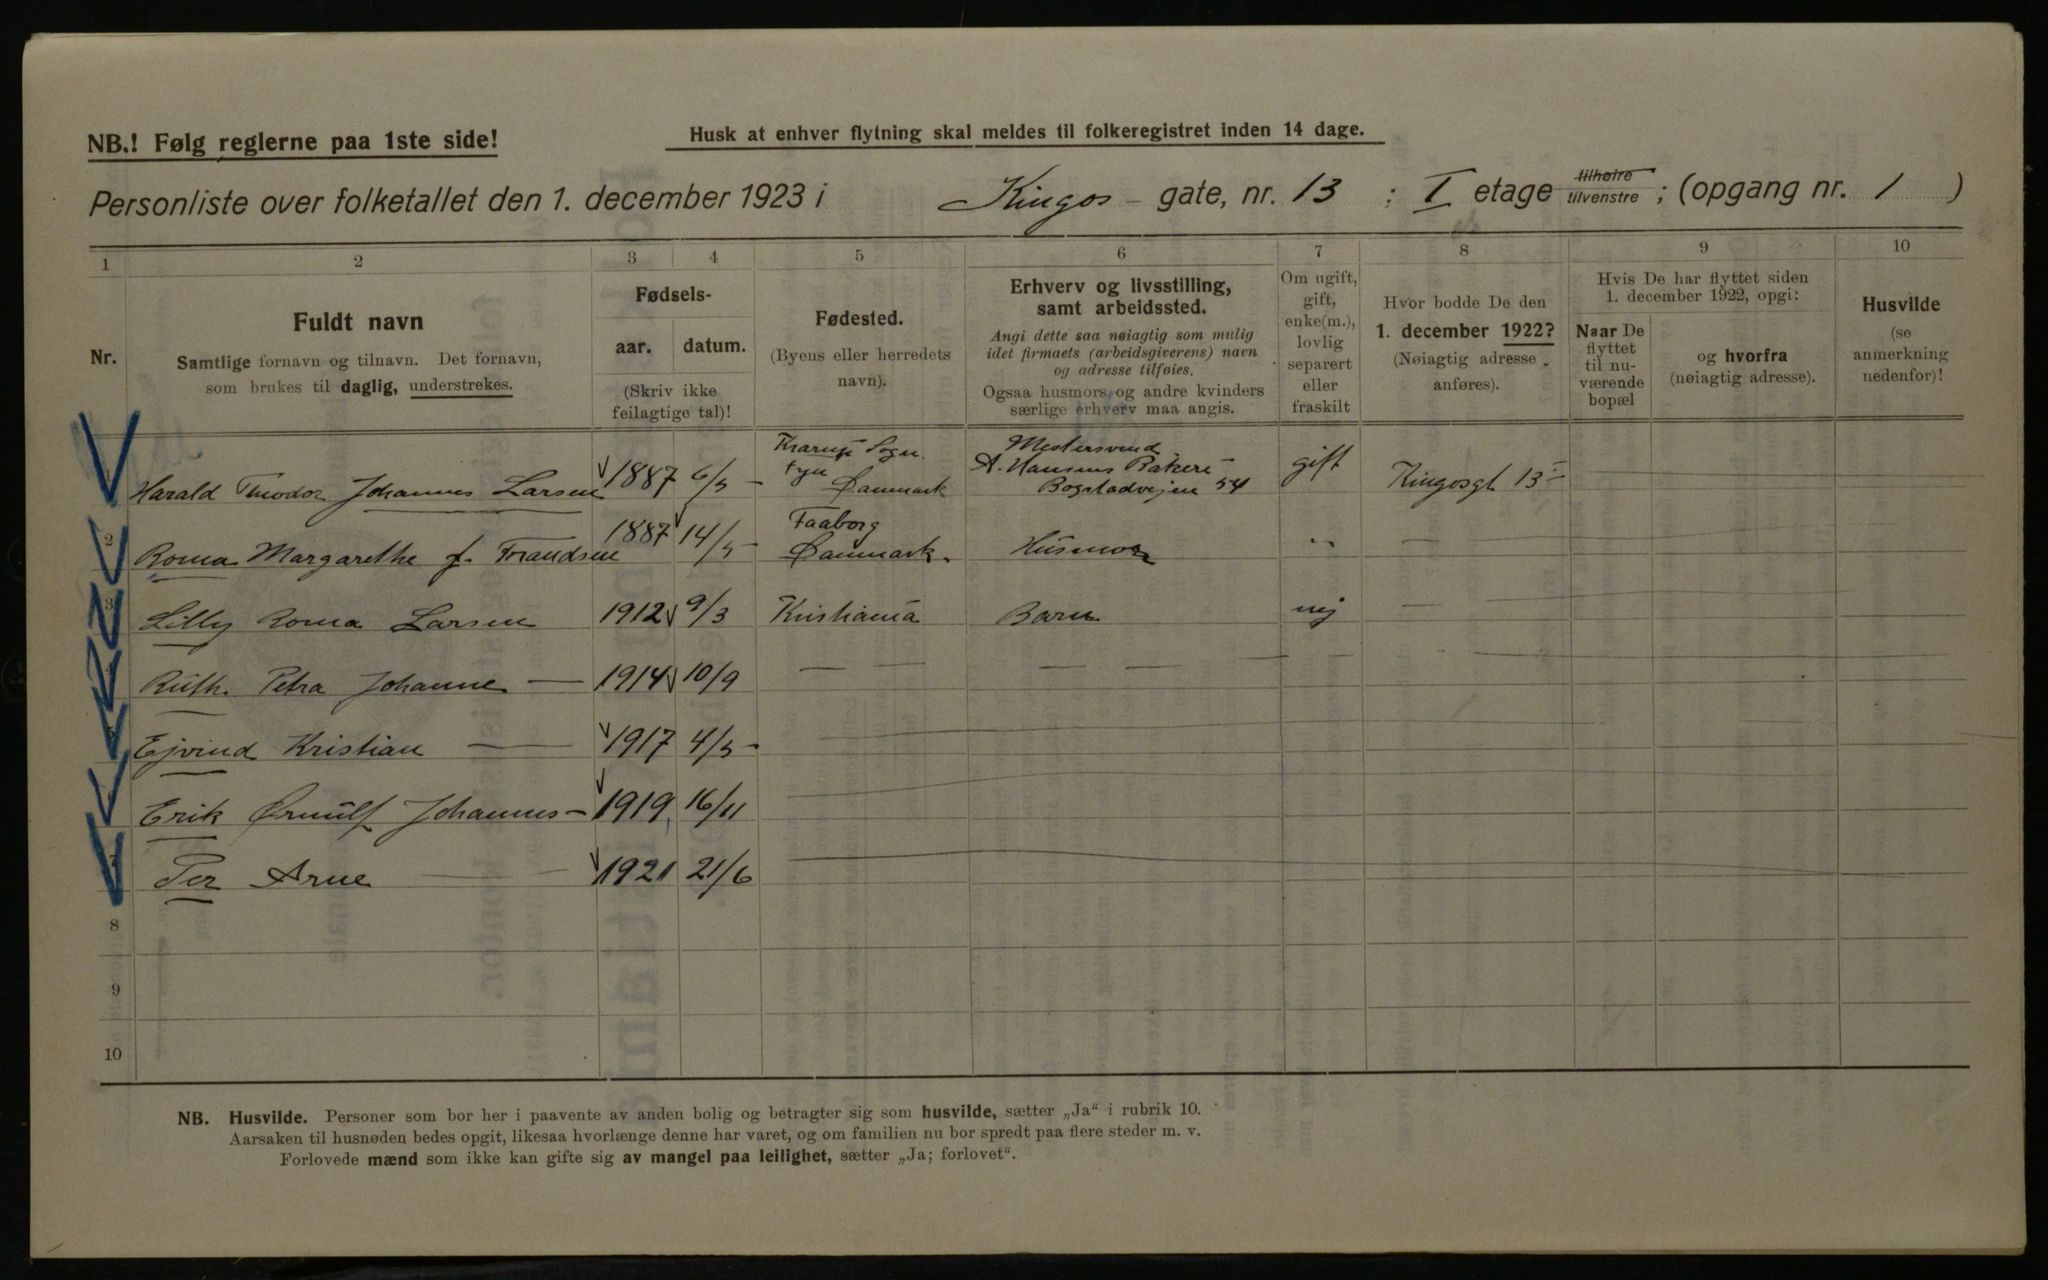 NB.! Følg reglerne paa 1ste side!
Husk at enhver flytning skal meldes til folkeregistret inden 14 dage.
Personliste over folketallet den 1. december 1923 i Kingos - gate, nr. 13 ; I etage tilhøire tilvenstre ; (opgang nr. 1 )
1 2 3 4 5 6 7 8 9 10
Nr.
Fuldt navn
Samtlige fornavn og tilnavn. Det fornavn,
som brukes til daglig, understrekes.
Fødsels-
aar. datum.
(Skriv ikke
feilagtige tal)!
Fødested.
(Byens eller herredets
navn).
Erhverv og livsstilling,
samt arbeidssted.
Angi dette saa nøiagtig som mulig
idet firmaets (arbeidsgiverens) navn
og adresse tilføies.
Ogsaa husmors og andre kvinders
særlige erhverv maa angis.
Om ugift,
gift,
enke(m.),
lovlig
separert
eller
fraskilt
Hvor bodde De den
1. december 1922?
(Nøiagtig adresse
anføres).
Hvis De har flyttet siden
1. december 1922, opgi:
Naar De
flyttet
til nu-
værende
bopæl
og hvorfra
(nøiagtig adresse).
Husvilde
(se
anmerkning
nedenfor)!
Harald Theodor Johannes Larsen 1887 6/5 - Krarup Sogn. Fyn Danmark Mestersvend A. Hansens Bakeri Bogstadvejen 54 gift Kingosgt 13 I
2 Roma Margarethe f. Frandsen 1887 14/5 - Faaborg Danmark. Husmor " —
3 Lilly Roma Larsen 1912 9/3 Kristiania Barn nej —
Ruth Petra Johanne — 1914 10/9 — — — —
Ejvind Kristian — 1917 4/5 -
Erik Ørnulf Johannes — 1919 16/11
7 Per Arne — 1921 21/6
8
9
10
NB. Husvilde. Personer som bor her i paavente av anden bolig og betragter sig som husvilde, sætter „Ja“ i rubrik 10.
Aarsaken til husnøden bedes opgit, likesaa hvorlænge denne har varet, og om familien nu bor spredt paa flere steder m. v.
Forlovede mænd som ikke kan gifte sig av mangel paa leilighet, sætter „Ja; forlovet“.